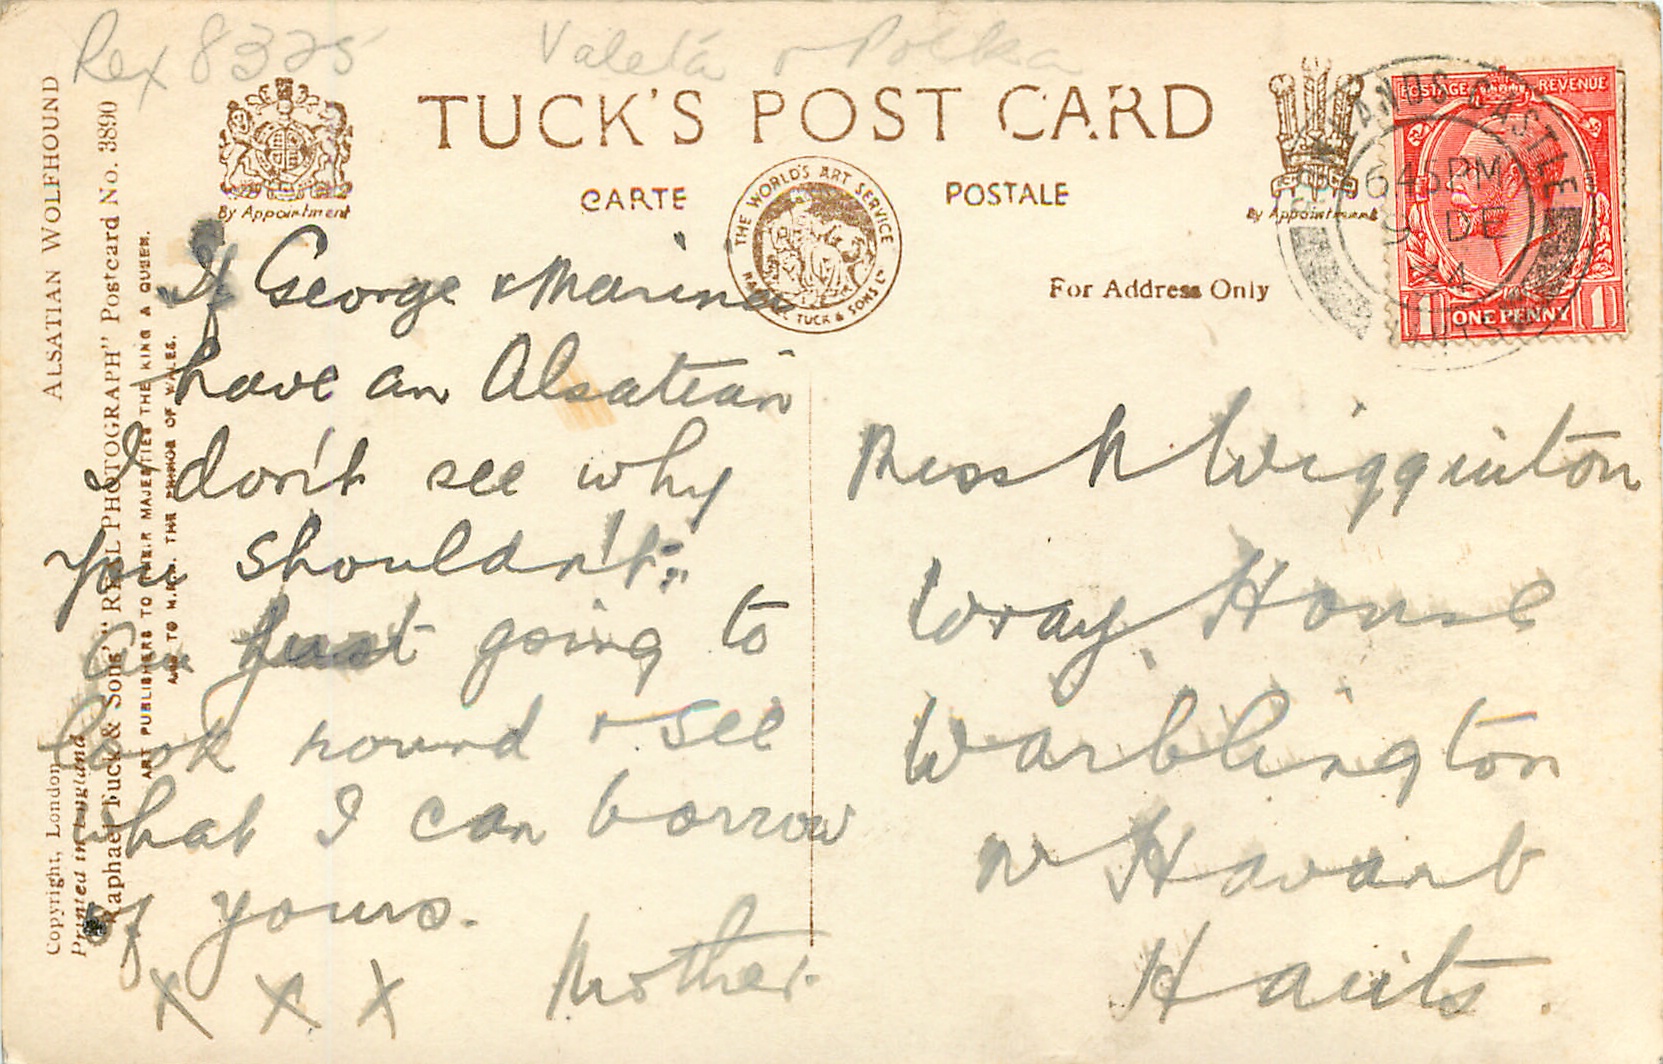 Rex 8325 Valeta & Polka
TUCK'S POST CARD
CARTE POSTALE
By Appointment
By Appointment
THE WORLD'S ART SERVICE
RAPHAEL TUCK & SONS LD
For Address Only
POSTAGE REVENUE
1 ONE PENNY 1
LANDS CASTLE
645PM
9 DE
34
ALSATIAN WOLFHOUND
Raphael Tuck & Sons' "REAL PHOTOGRAPH" Postcard No. 3890
ART PUBLISHERS TO THEIR MAJESTIES THE KING & QUEEN.
AND TO H.R.H. THE PRINCE OF WALES.
Copyright, London
Printed in England
If George & Marina
have an Alsatian
I don't see why
you shouldn't:
Am just going to
look round & see
what I can borrow
of yours.
x x x Mother.
Miss N Wigginton
Wray House
Warblington
Nr Havant
Hants.